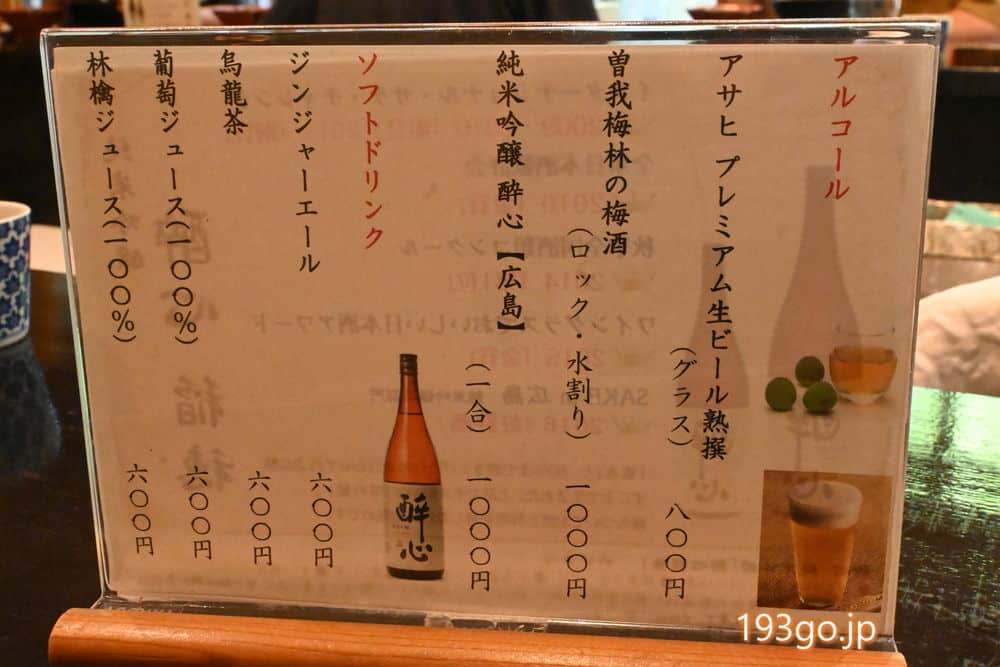 アルコール
アサヒ プレミアム生ビール熟撰
(グラス) 八〇〇円
曽我梅林の梅酒
(ロック・水割り) 一〇〇〇円
純米吟醸 酔心【広島】
(一合) 一〇〇〇円
酔心
ソフトドリンク
ジンジャーエール 六〇〇円
烏龍茶 六〇〇円
葡萄ジュース(一〇〇%) 六〇〇円
林檎ジュース(一〇〇%) 六〇〇円
193go.jp